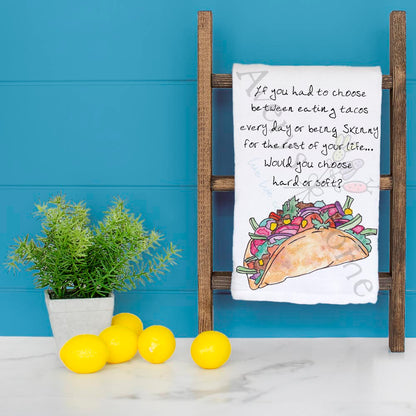 If you had to choose
between eating tacos
every day or being Skinny
for the rest of your life...
Would you choose
hard or soft?